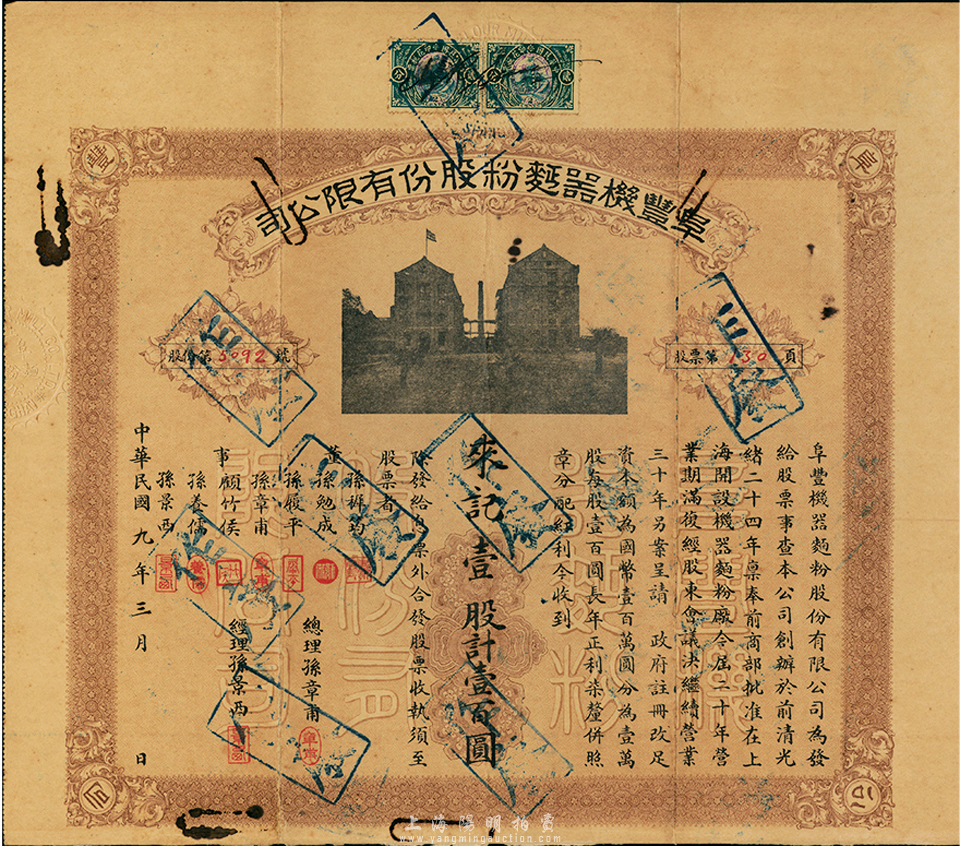 阜豐機器麪粉股份有限公司
股票第130頁
股份第5092號
阜豐機器麵粉股份有限公司為發
給股票事查本公司創辦於前清光
緒二十四年稟奉前商部批准在上
海開設機器麵粉廠今屆二十年營
業期滿復經股東會議決繼續營業
三十年另案呈請 政府註冊改足
資本額為國幣壹百萬圓分為壹萬
股每股壹百圓長年正利柒釐併照
章分配紅利今收到
來記壹股計壹百圓
除發給息票外合發股票收執須至
股票者
董
孫勉成
孫履平
孫章甫
事 顧竹侯
孫養儒
孫景西
總理孫章甫
經理孫景西
中華民國九年三月 日
阜
豐
公
司
上海陽明拍賣
www.yangmingauction.com